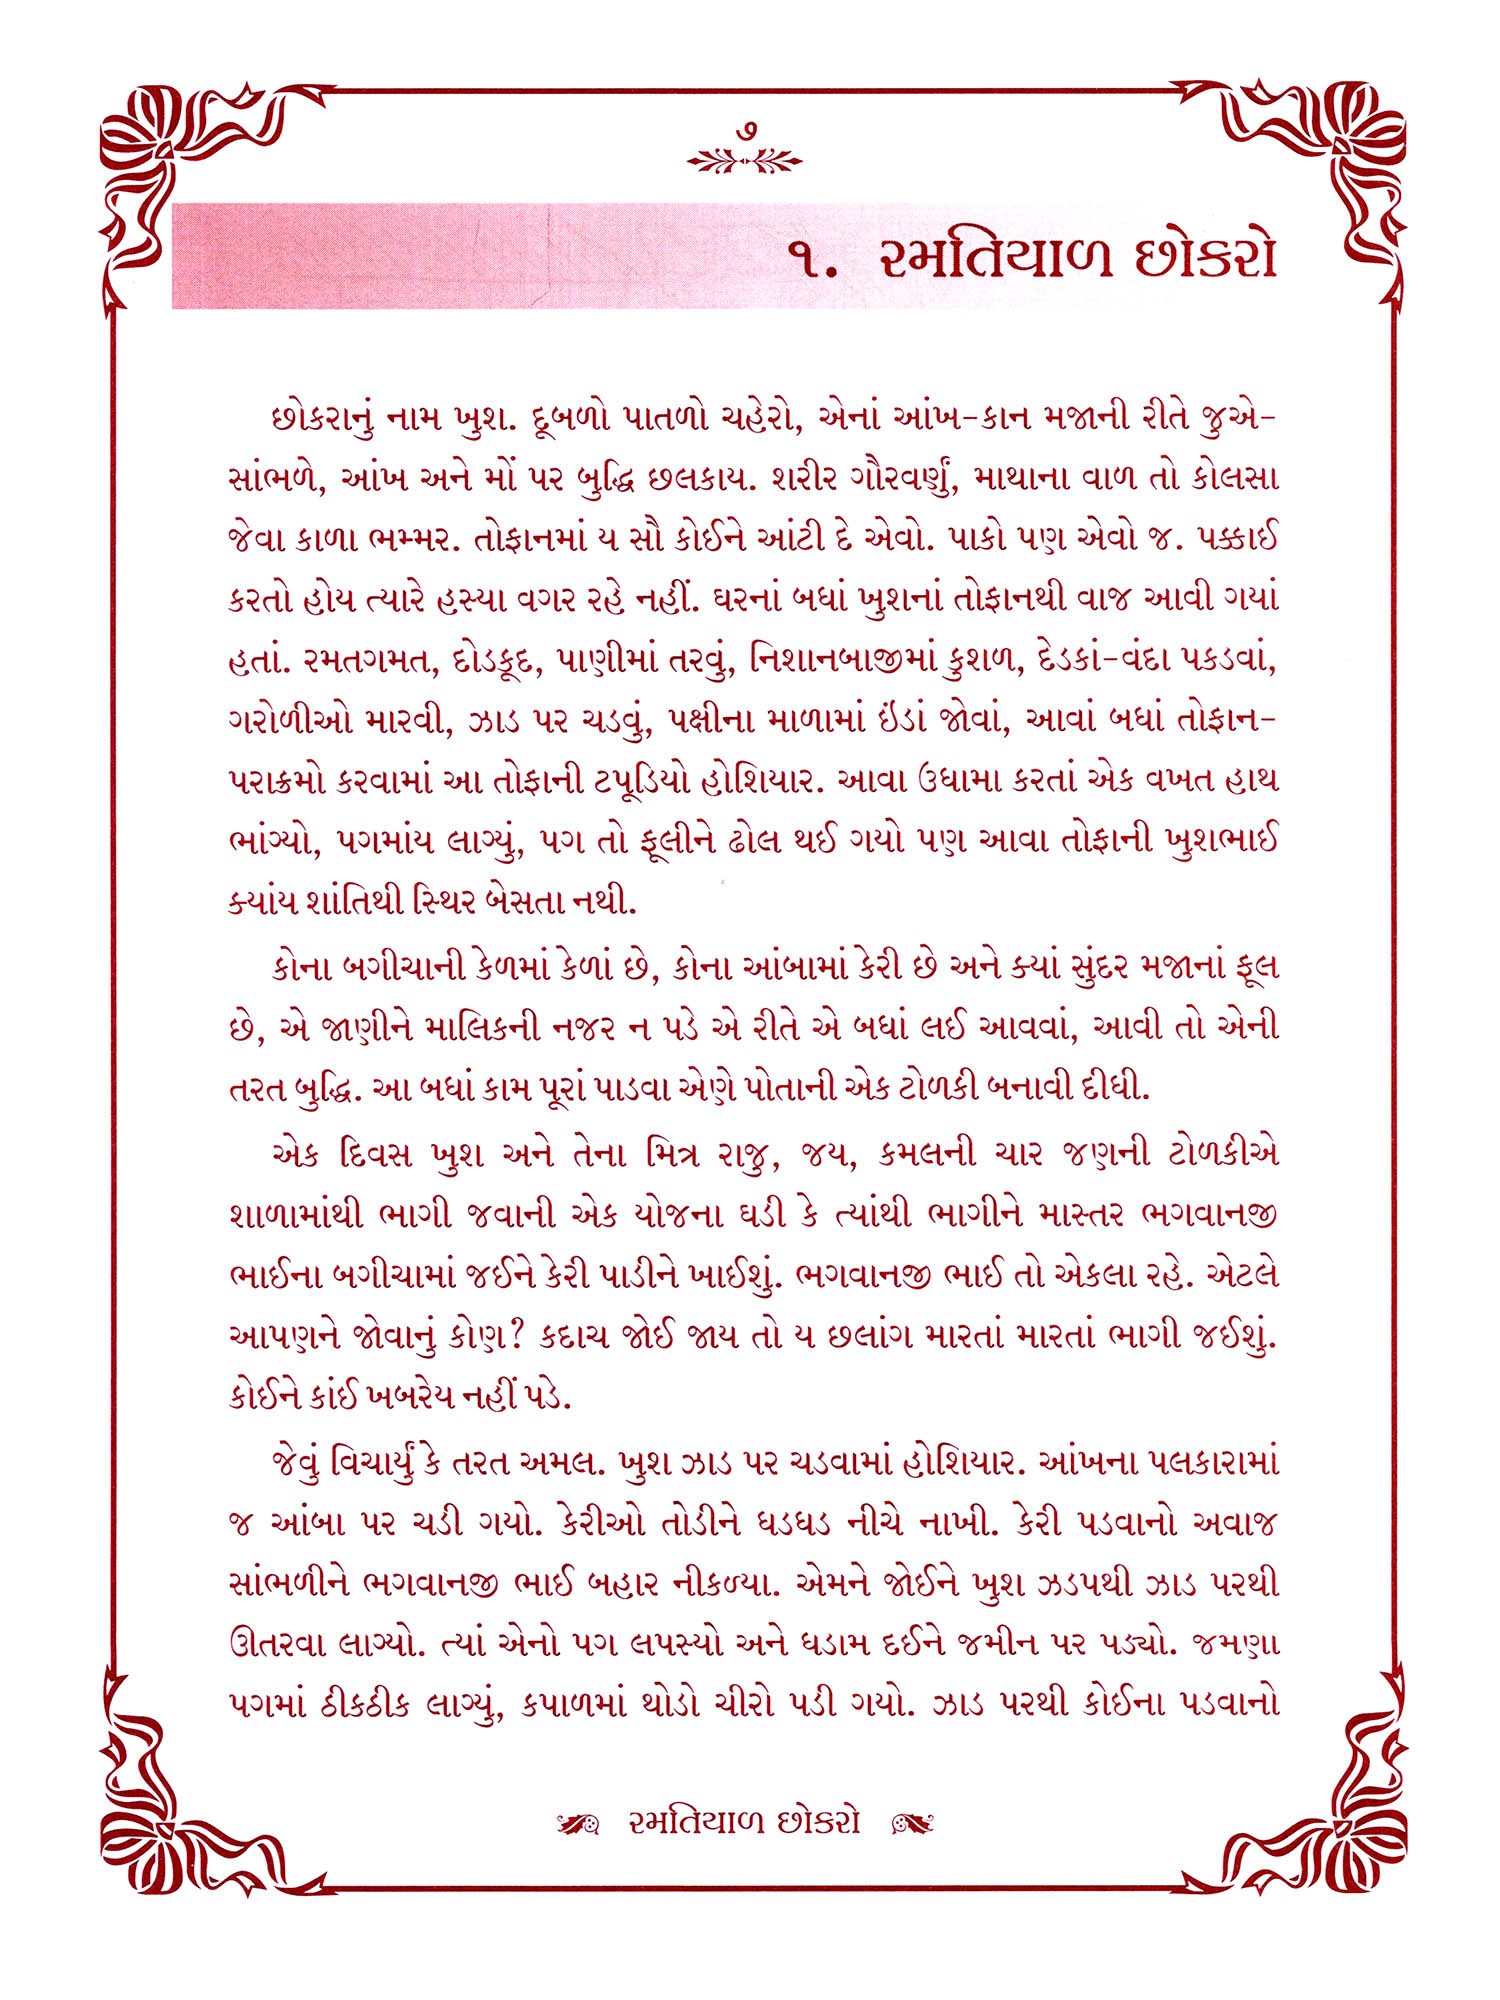 ૭
૧. રમતિયાળ છોકરો
છોકરાનું નામ ખુશ. દૂબળો પાતળો ચહેરો, એનાં આંખ-કાન મજાની રીતે જુએ-
સાંભળે, આંખ અને મોં પર બુદ્ધિ છલકાય. શરીર ગૌરવર્ણું, માથાના વાળ તો કોલસા
જેવા કાળા ભમ્મર. તોફાનમાં ય સૌ કોઈને આંટી દે એવો. પાકો પણ એવો જ. પક્કાઈ
કરતો હોય ત્યારે હસ્યા વગર રહે નહીં. ઘરનાં બધાં ખુશનાં તોફાનથી વાજ આવી ગયાં
હતાં. રમતગમત, દોડકૂદ, પાણીમાં તરવું, નિશાનબાજીમાં કુશળ, દેડકાં-વંદા પકડવાં,
ગરોળીઓ મારવી, ઝાડ પર ચડવું, પક્ષીના માળામાં ઇંડાં જોવાં, આવાં બધાં તોફાન-
પરાક્રમો કરવામાં આ તોફાની ટપૂડિયો હોશિયાર. આવા ઉધામા કરતાં એક વખત હાથ
ભાંગ્યો, પગમાંય લાગ્યું, પગ તો ફૂલીને ઢોલ થઈ ગયો પણ આવા તોફાની ખુશભાઈ
ક્યાંય શાંતિથી સ્થિર બેસતા નથી.
કોના બગીચાની કેળમાં કેળાં છે, કોના આંબામાં કેરી છે અને ક્યાં સુંદર મજાનાં ફૂલ
છે, એ જાણીને માલિકની નજર ન પડે એ રીતે એ બધાં લઈ આવવાં, આવી તો એની
તરત બુદ્ધિ. આ બધાં કામ પૂરાં પાડવા એણે પોતાની એક ટોળકી બનાવી દીધી.
એક દિવસ ખુશ અને તેના મિત્ર રાજુ, જય, કમલની ચાર જણની ટોળકીએ
શાળામાંથી ભાગી જવાની એક યોજના ઘડી કે ત્યાંથી ભાગીને માસ્તર ભગવાનજી
ભાઈના બગીચામાં જઈને કેરી પાડીને ખાઈશું. ભગવાનજી ભાઈ તો એકલા રહે. એટલે
આપણને જોવાનું કોણ? કદાચ જોઈ જાય તો ય છલાંગ મારતાં મારતાં ભાગી જઈશું.
કોઈને કાંઈ ખબરેય નહીં પડે.
જેવું વિચાર્યું કે તરત અમલ. ખુશ ઝાડ પર ચડવામાં હોશિયાર. આંખના પલકારામાં
જ આંબા પર ચડી ગયો. કેરીઓ તોડીને ધડધડ નીચે નાખી. કેરી પડવાનો અવાજ
સાંભળીને ભગવાનજી ભાઈ બહાર નીકળ્યા. એમને જોઈને ખુશ ઝડપથી ઝાડ પરથી
ઊતરવા લાગ્યો. ત્યાં એનો પગ લપસ્યો અને ધડામ દઈને જમીન પર પડ્યો. જમણા
પગમાં ઠીકઠીક લાગ્યું, કપાળમાં થોડો ચીરો પડી ગયો. ઝાડ પરથી કોઈના પડવાનો
રમતિયાળ છોકરો